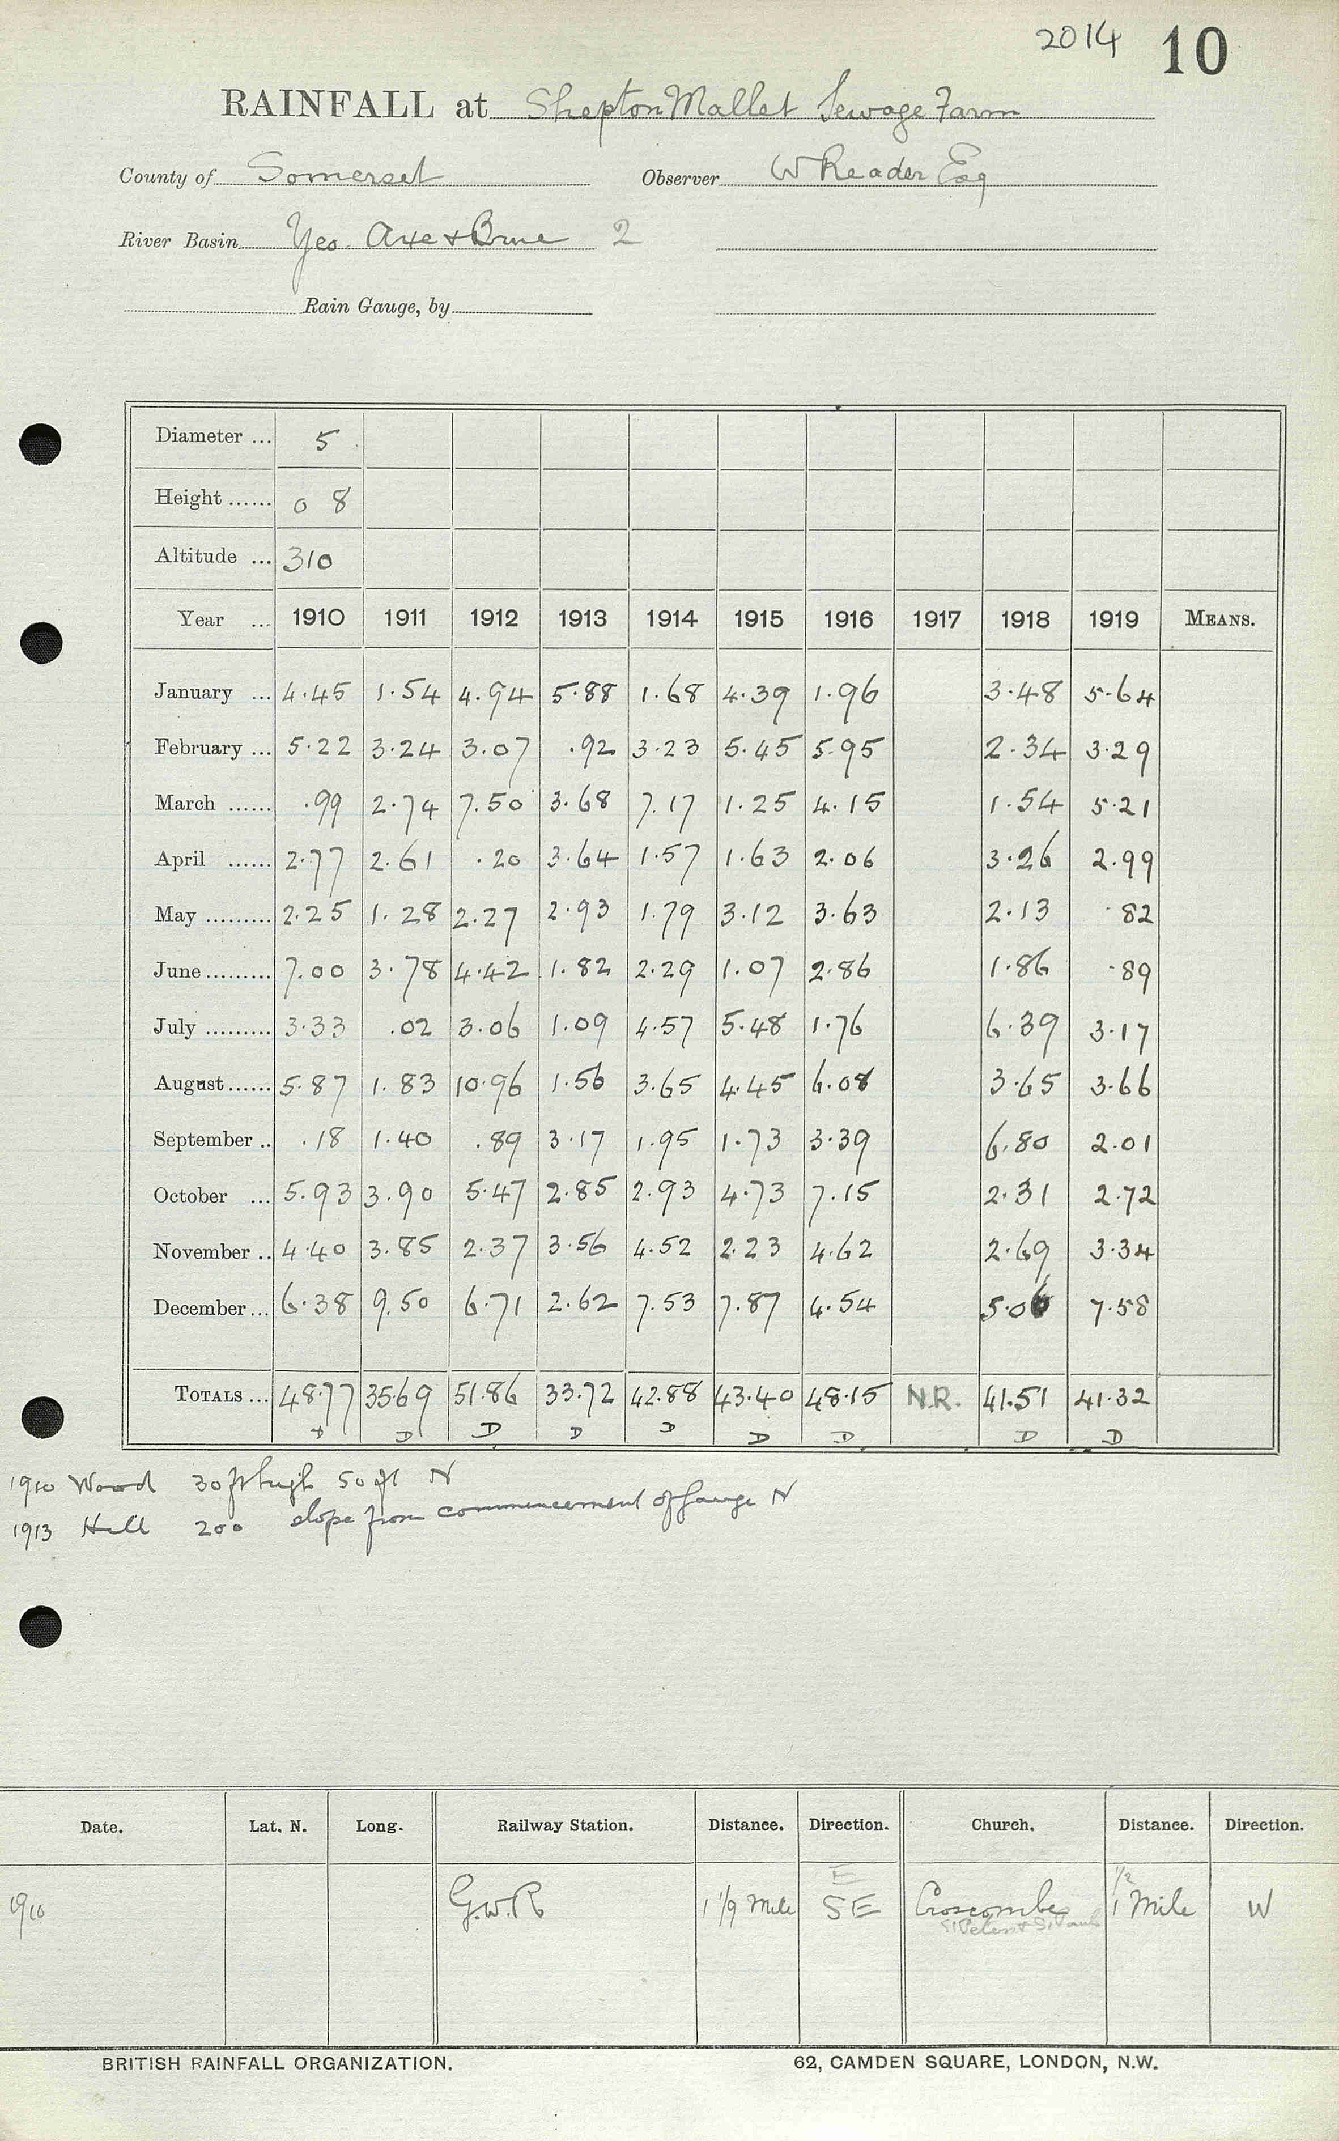 2014 10
RAINFALL at Shepton Mallet Sewage Farm
County of Somerset Observer W Reader Esq
River Basin Yeo. Axe & Brue 2
Rain Gauge, by
Diameter ... 5
Height ...... 0 8
Altitude ... 310
Year ... 1910 1911 1912 1913 1914 1915 1916 1917 1918 1919 MEANS.
January ... 4.45 1.54 4.94 5.88 1.68 4.39 1.96 3.48 5.64
February ... 5.22 3.24 3.07 .92 3.23 5.45 5.95 2.34 3.29
March ...... .99 2.74 7.50 3.68 7.17 1.25 4.15 1.54 5.21
April ...... 2.77 2.61 .20 3.64 1.57 1.63 2.06 3.26 2.99
May ......... 2.25 1.28 2.27 2.93 1.79 3.12 3.63 2.13 .82
June ......... 7.00 3.78 4.42 1.82 2.29 1.07 2.86 1.86 .89
July ......... 3.33 .02 3.06 1.09 4.57 5.48 1.76 6.39 3.17
August ...... 5.87 1.83 10.96 1.56 3.65 4.45 6.08 3.65 3.66
September .. .18 1.40 .89 3.17 1.95 1.73 3.39 6.80 2.01
October ... 5.93 3.90 5.47 2.85 2.93 4.73 7.15 2.31 2.72
November .. 4.40 3.85 2.37 3.56 4.52 2.23 4.62 2.69 3.34
December ... 6.38 9.50 6.71 2.62 7.53 7.87 4.54 5.06 7.58
TOTALS ... 48.77 35.69 51.86 33.72 42.88 43.40 48.15 N.R. 41.51 41.32
D D D D D D D D D
1910 Wood 30 ft high 50 ft N
1913 Hill 200 slope from commencement of gauge N
Date. Lat. N. Long. Railway Station. Distance. Direction. Church. Distance. Direction.
E 1/2
1910 G.W.R 1 1/9 Mile SE Croscombe 1 Mile W
St Peter & St Paul
BRITISH RAINFALL ORGANIZATION. 62, CAMDEN SQUARE, LONDON, N.W.